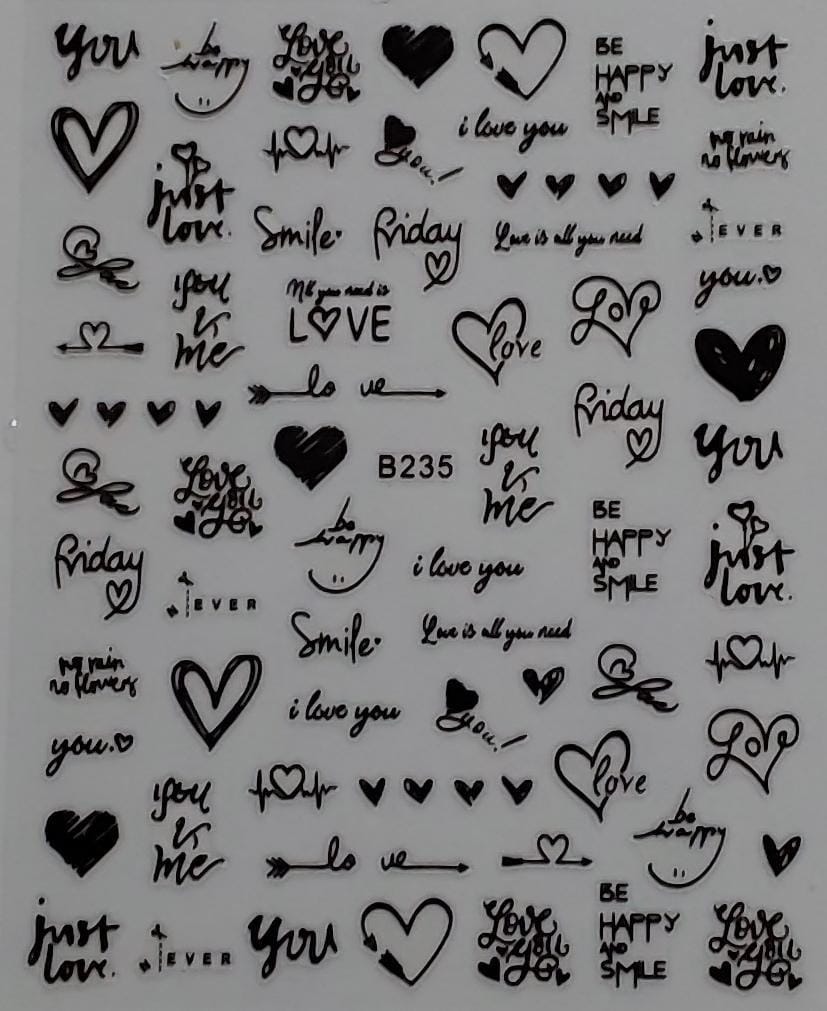 you
be
happy
Love
you
BE
HAPPY
AND
SMILE
just
love.
i love you
you!
no rain
no flowers
just
love.
Smile
friday
Love is all you need
EVER
you.
you
&
me
All you need is
LOVE
love
Love
lo ve
friday
you
B235
you
&
me
Love
you
be
happy
BE
HAPPY
AND
SMILE
just
love.
friday
i love you
EVER
Smile
Love is all you need
no rain
no flowers
i love you
you!
you.
Love
love
you
&
me
be
happy
lo ve
BE
HAPPY
AND
SMILE
just
love.
EVER
you
Love
you
Love
you